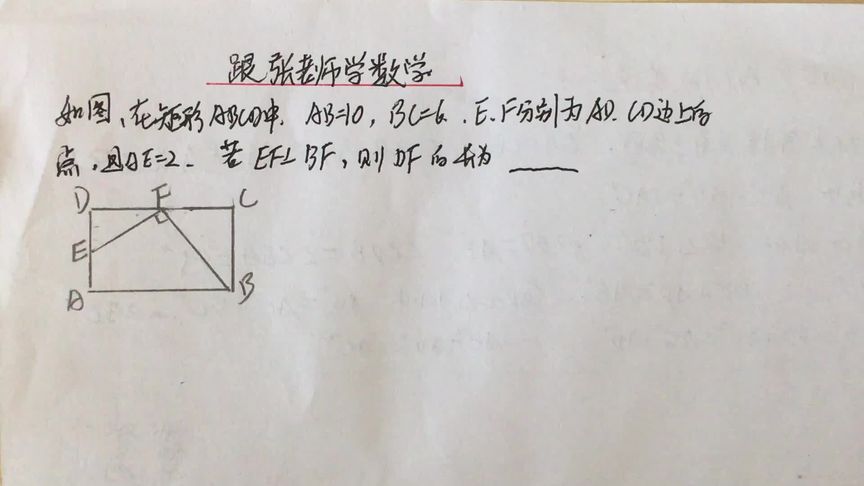 跟张老师学数学
如图,在矩形ABCD中. AB=10, BC=6. E、F分别为AD. CD边上的
点,且AE=2. 若EF⊥BF,则DF的长为
D F C
E
A B